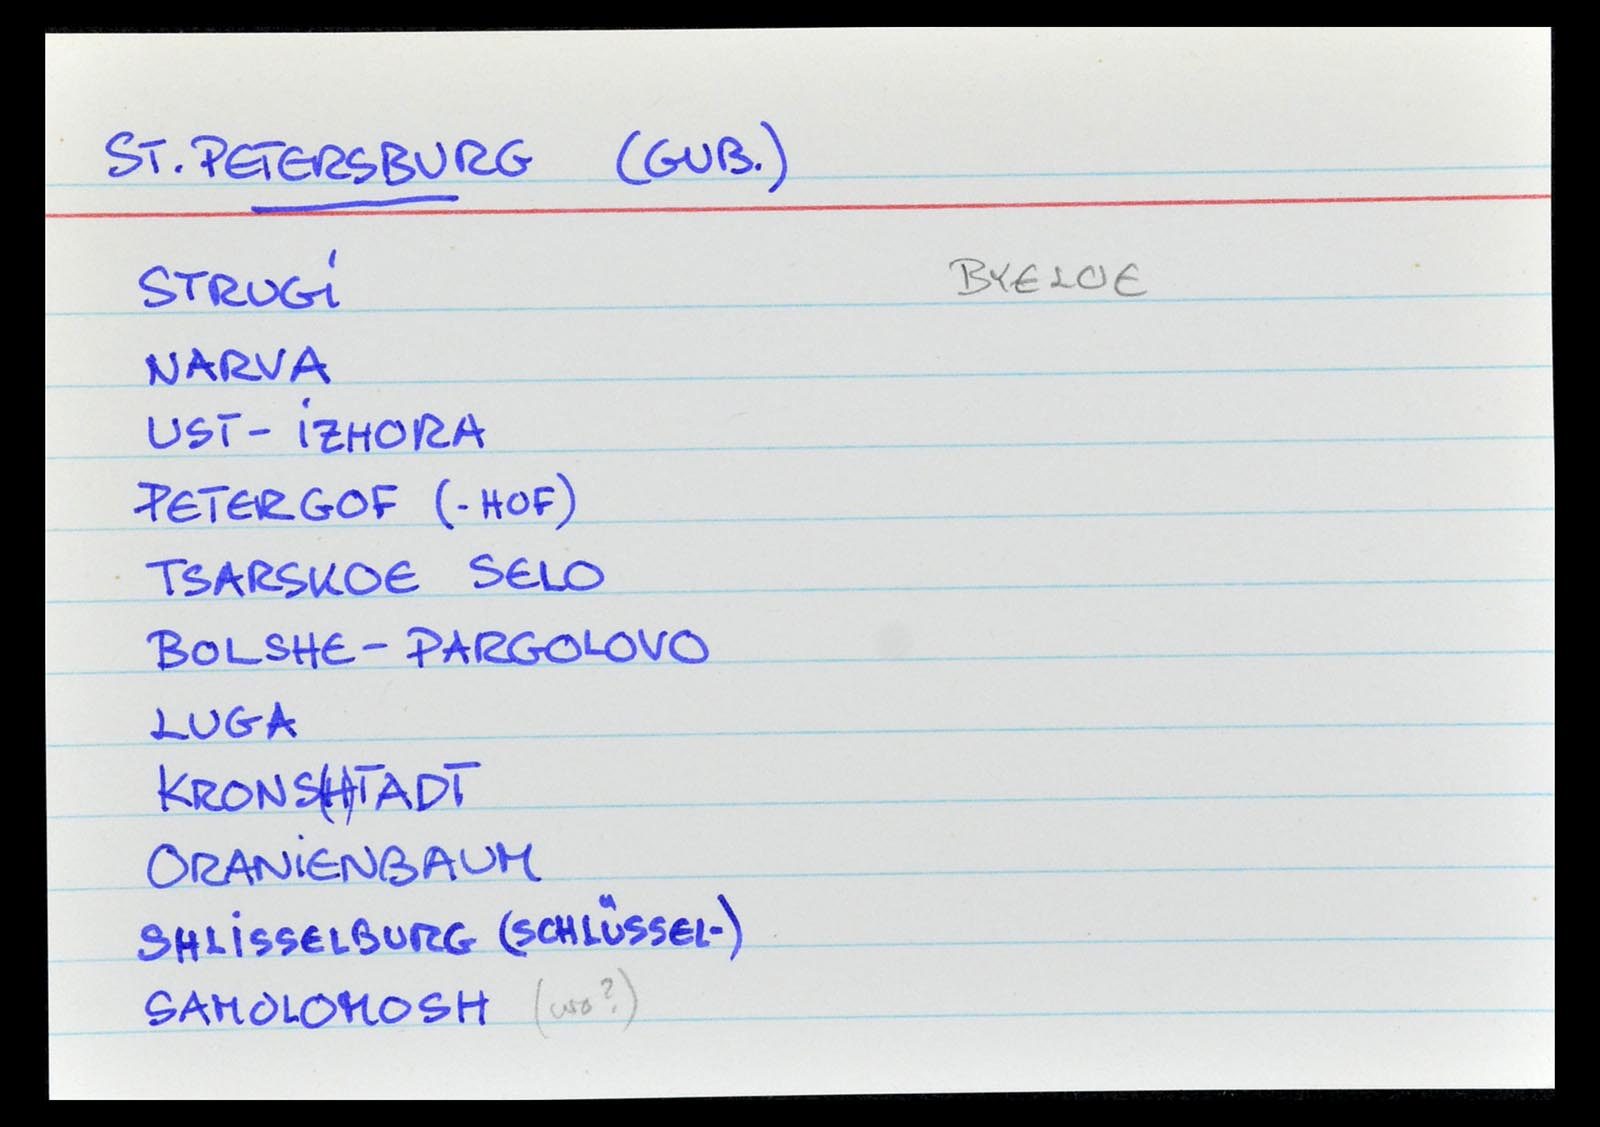 ST. PETERSBURG (GUB.)
STRUGI BYELOE
NARVA
UST- IZHORA
PETERGOF (-HOF)
TSARSKOE SELO
BOLSHE- PARGOLOVO
LUGA
KRONS(H)TADT
ORANIENBAUM
SHLISSELBURG (SCHLÜSSEL-)
SAMOLOMOSH (wo?)